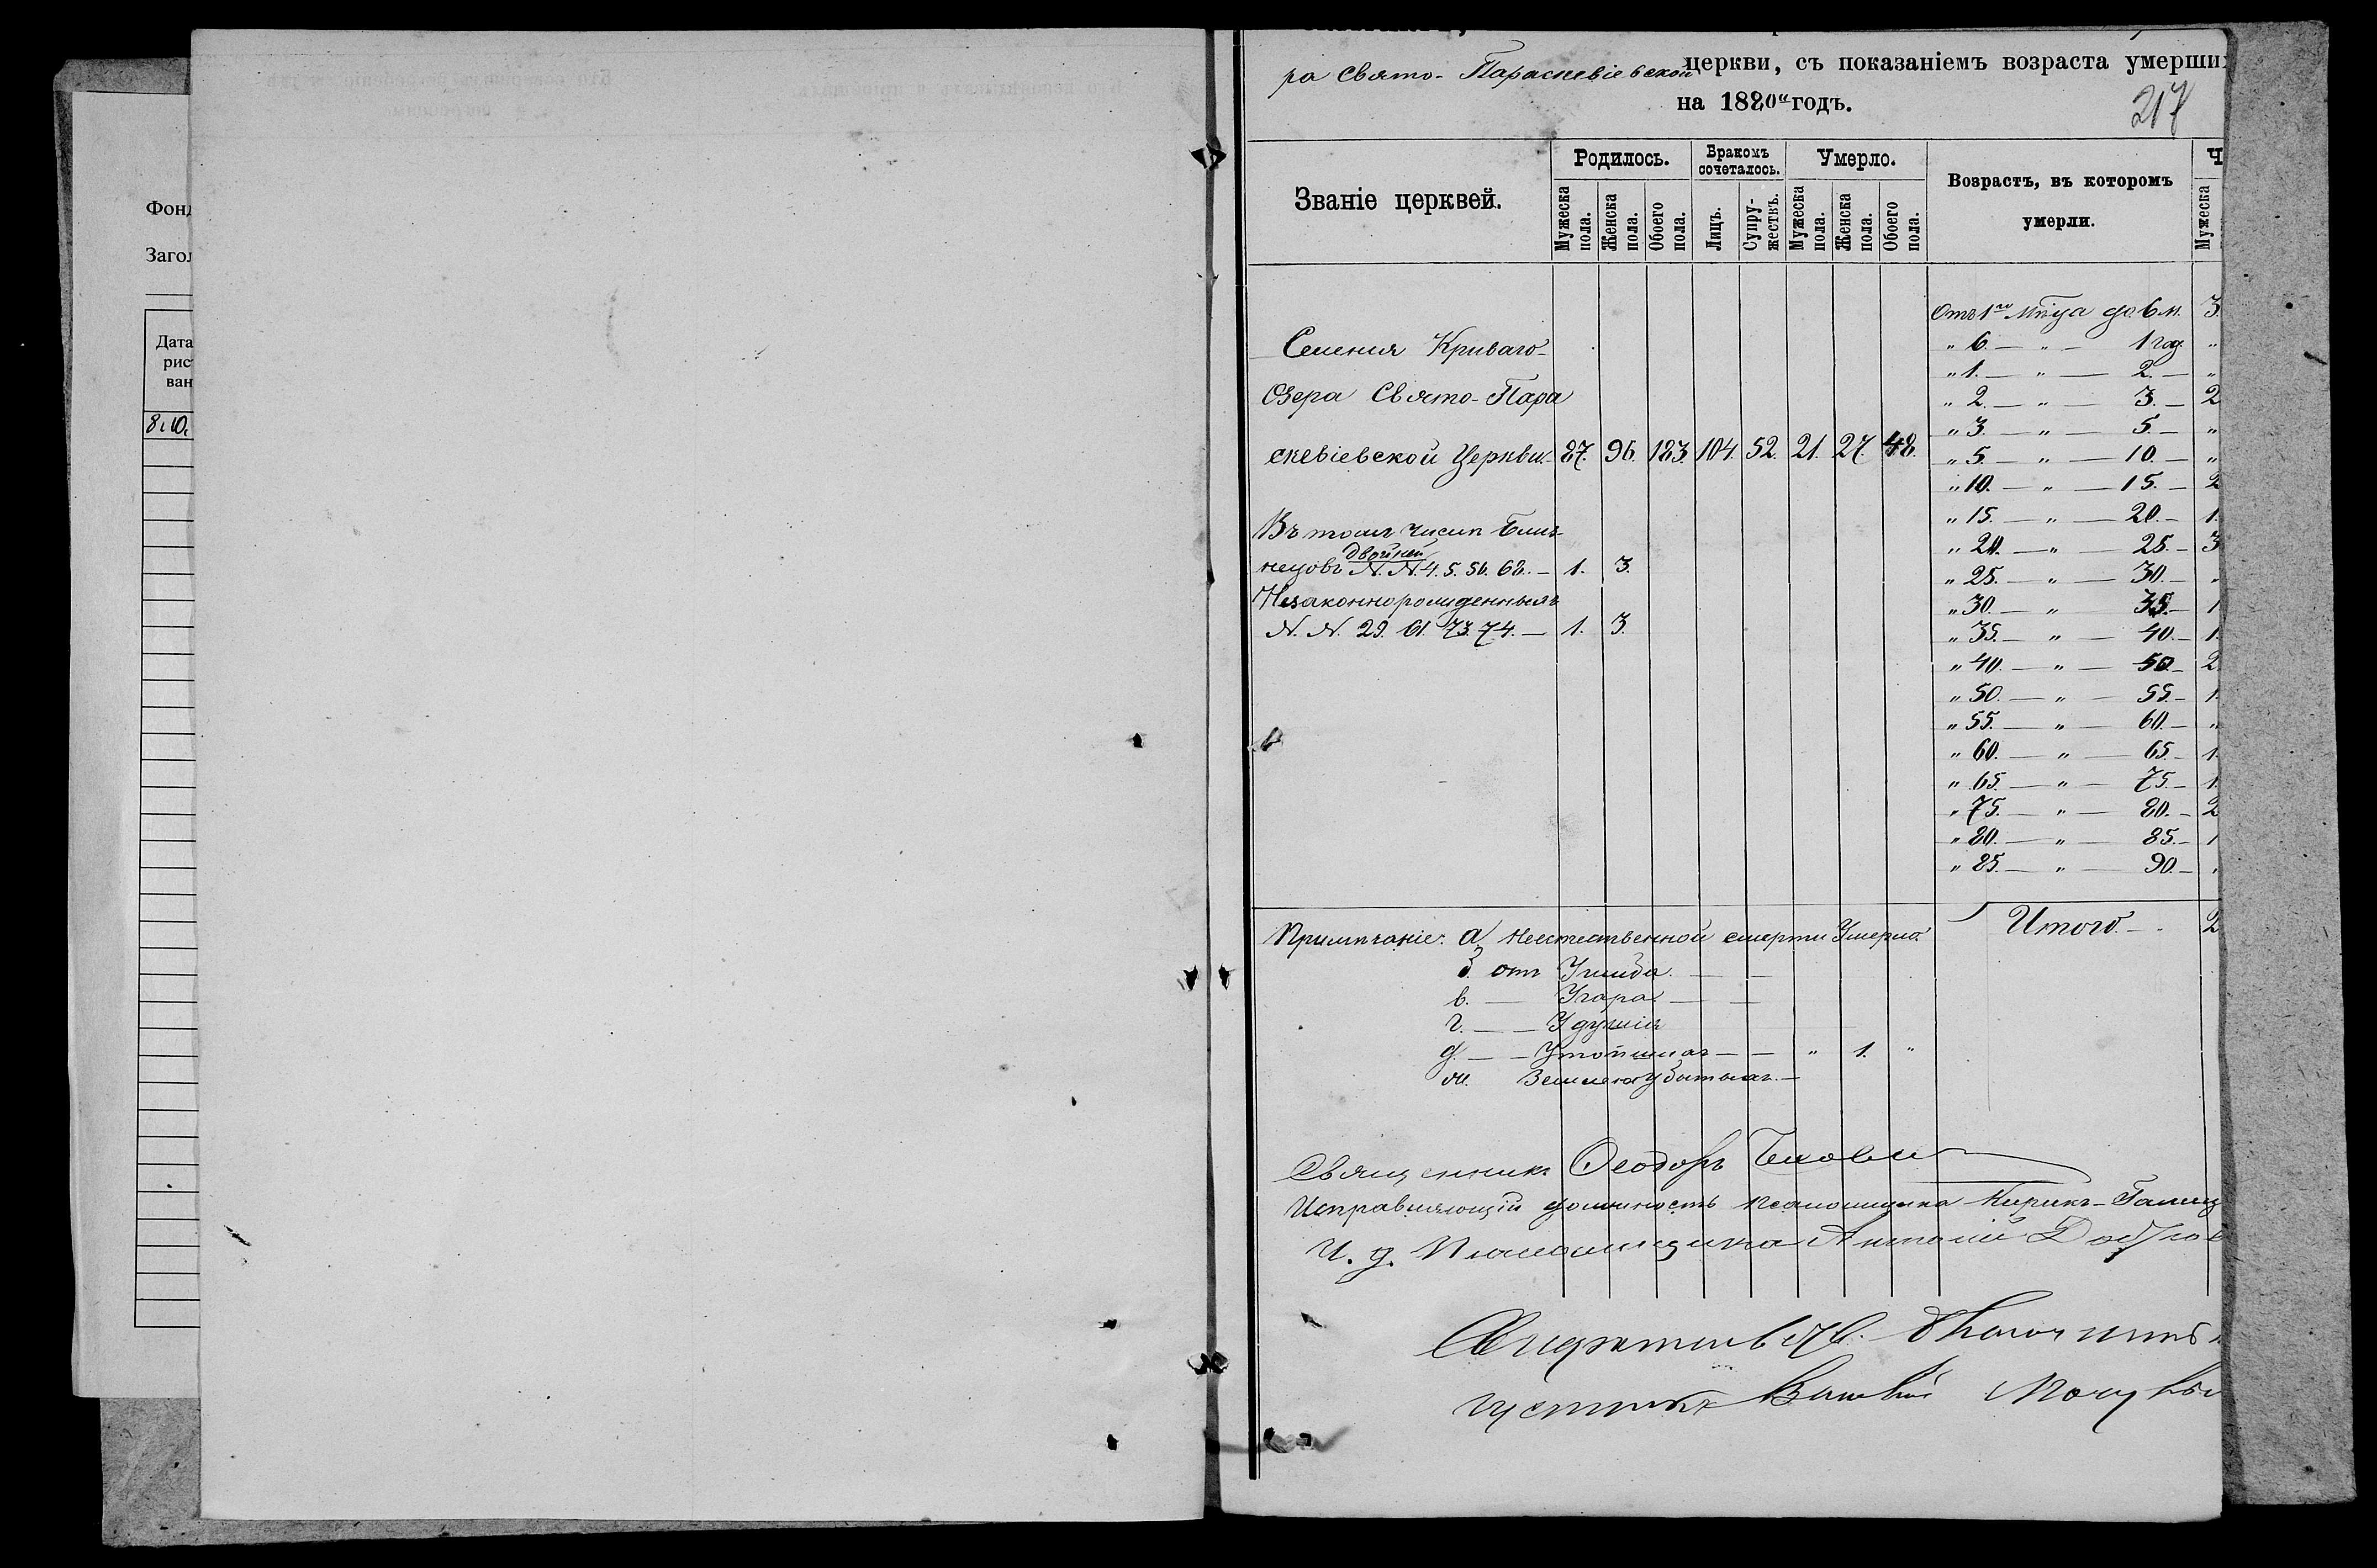 Фонд
Загол
Дата
рис
ван
8.10.
ра Свято-Параскевіевской церкви, съ показаніемъ возраста умерши
на 1880й годъ.
217
Званіе церквей.
Родилось.
Бракомъ сочеталось.
Умерло.
Возрастъ, въ которомъ умерли.
Ч
Мужеска пола.
Женска пола.
Обоего пола.
Лицъ.
Супружествъ.
Мужеска пола.
Женска пола.
Обоего пола.
Мужеска
Селенія Криваго-
Озера Свято-Пара
скевіевской Церкви. 87. 96. 183. 104. 52. 21. 27. 48.
Въ томъ числѣ близ-
двойней
нецовъ N.N. 4. 5. 56. 68. — 1. 3.
Незаконнорожденныхъ
N.N. 29. 61. 73. 74. — 1. 3.
Отъ 1го мѣсца до 6 м. 3.
„ 6. — „ — 1 год „
„ 1. — „ — 2. — „
„ 2. — „ — 3. — 2
„ 3. — „ — 5. — „
„ 5. — „ — 10. — „
„ 10. — „ — 15. — 2
„ 15. — „ — 20. — 1.
„ 20. — „ — 25. — 3
„ 25. — „ — 30. — „
„ 30. — „ — 35. — 1
„ 35. — „ — 40. — 1.
„ 40. — „ — 50. — 2
„ 50. — „ — 55. — 1.
„ 55. — „ — 60. — „
„ 60. — „ — 65. — 1.
„ 65. — „ — 75. — 1.
„ 75. — „ — 80. — 2
„ 80. — „ — 85. — 1
„ 85. — „ — 90. — „
Итого. — 2
Примѣчаніе: а, Неестественной смерти Умерло.
б. отъ Ушиба. — —
в. — Угара — —
г. — — Удушія
д. — — Утопшихъ — — „ 1. „
ж. Землею убитыхъ. —
Священникъ Ѳеодоръ
Исправляющій должность псаломщика Кирикъ Галиц
И. д. Псаломщика Антоній